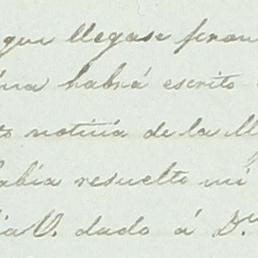 que llegase
habrá escrito
noticia de la
había resuelto mi
V. dado á D.